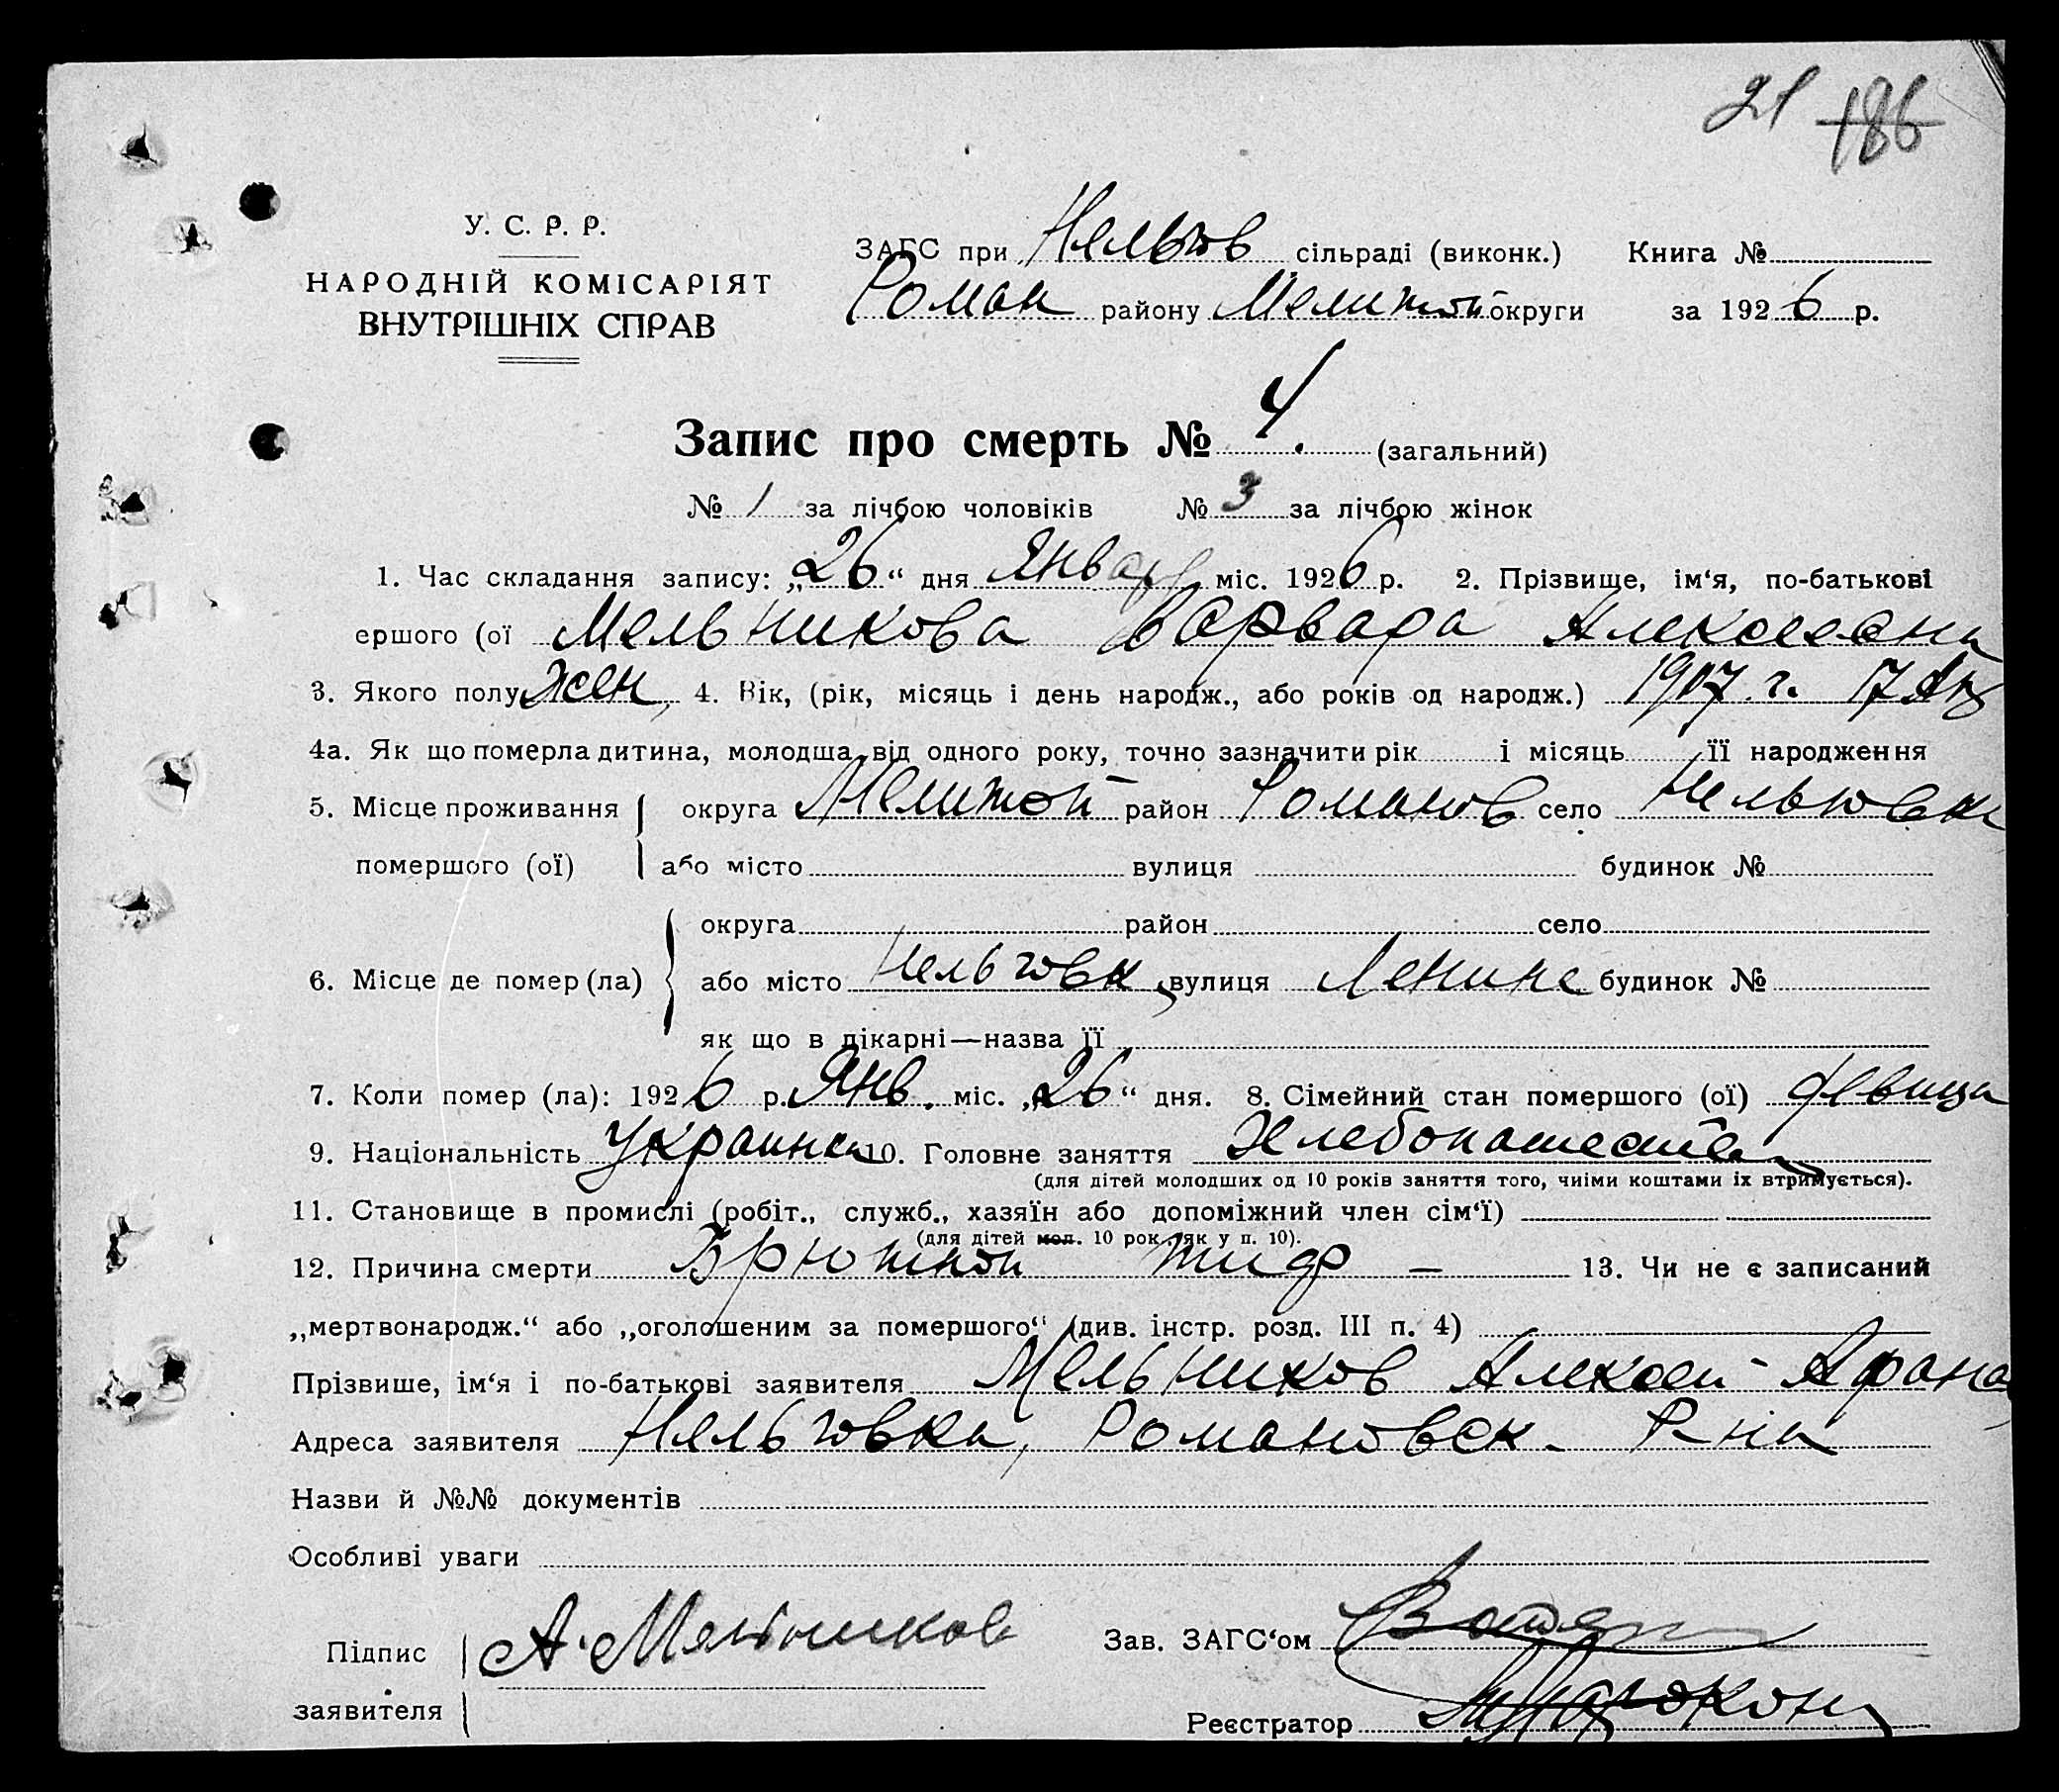 21 186
У. С. Р. Р.
НАРОДНІЙ КОМІСАРІЯТ
ВНУТРІШНІХ СПРАВ
ЗАГС при Нельгов сільраді (виконк.) Книга №
Роман району Мелитоп округи за 1926 р.
Запис про смерть № 4. (загальний)
№ 1 за лічбою чоловіків № 3 за лічбою жінок
1. Час складання запису: „26“ дня Января міс. 1926 р. 2. Прізвище, ім‘я, по-батькові
ершого (ої Мельникова Варвара Алексеевна
3. Якого полу жен, 4. Вік, (рік, місяць і день народж., або років од народж.) 1907 г. 17
4а. Як що померла дитина, молодша від одного року, точно зазначити рік і місяць її народження
5. Місце проживання округа Мелитоп район Романов село Нельговка
помершого (ої) або місто вулиця будинок №
округа район село
6. Місце де помер (ла) або місто Нельговка, вулиця Ленина будинок №
як що в лікарні—назва її
7. Коли помер (ла): 1926 р. Янв. міс. „26“ дня. 8. Сімейний стан помершого (ої) девица
9. Національність Украинка 10. Головне заняття Хлебопашество
(для дітей молодших од 10 років заняття того, чиїми коштами їх втримується).
11. Становище в промислі (робіт., служб., хазяїн або допоміжний член сім‘ї)
(для дітей мол. 10 рок. як у п. 10).
12. Причина смерти Брюшной тиф — 13. Чи не є записаний
„мертвонародж.“ або „оголошеним за помершого“ (див. інстр. розд. III п. 4)
Прізвише, ім‘я і по-батькові заявителя Мельников Алексей Афана
Адреса заявителя Нельговка, Романовск. Р-на
Назви й №№ документів
Особливі уваги
Підпис А. Мельников Зав. ЗАГС‘ом
заявителя Реєстратор